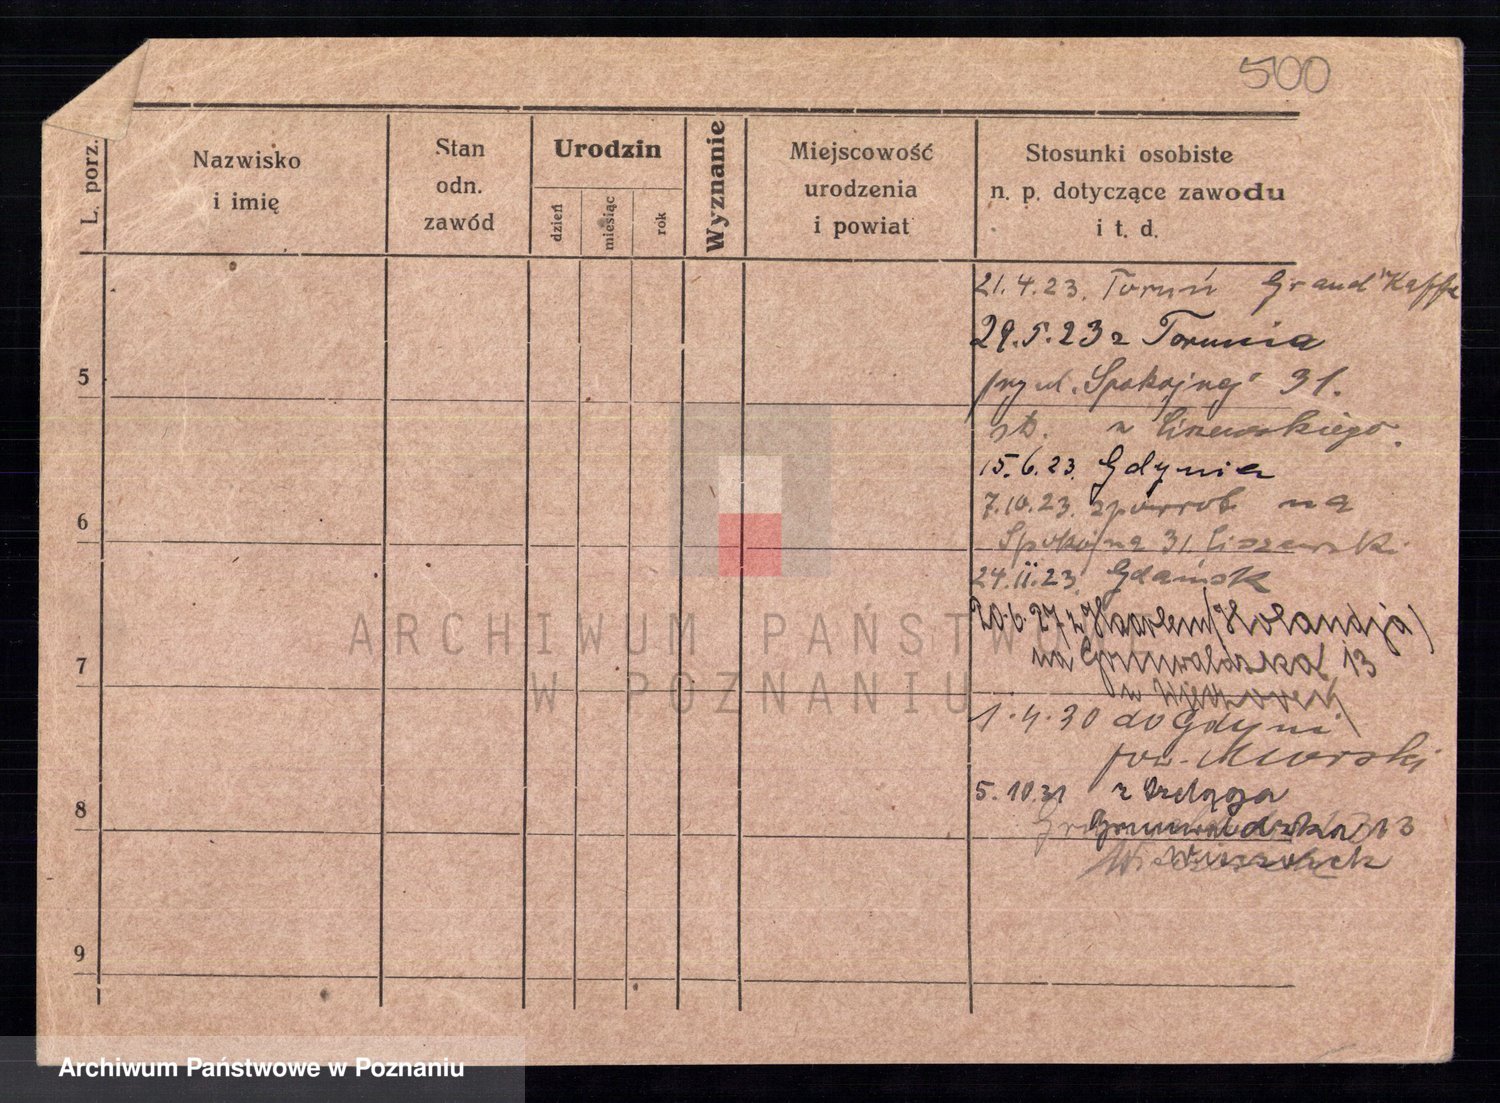 500
L. porz.
Nazwisko
i imię
Stan
odn.
zawód
Urodzin
dzień
miesiąc
rok
Wyznanie
Miejscowość
urodzenia
i powiat
Stosunki osobiste
n. p. dotyczące zawodu
i t. d.
21.4.23. Toruń Grand Kaffe
29.5.23 z Torunia
przy ul. Spokojnej 31.
5
15.6.23. Gdynia
7.10.23. na
6
Spokojna 31 Liszewski
24.II.23. Gdańsk
20.6.27 z Haarlem (Holandja)
na Grunwaldzka 13
7
1.4.30 do Gdyni
pow. Morski
5.10.31 z
8
Grunwaldzka 13
9
ARCHIWUM PAŃSTWOWE
W POZNANIU
Archiwum Państwowe w Poznaniu